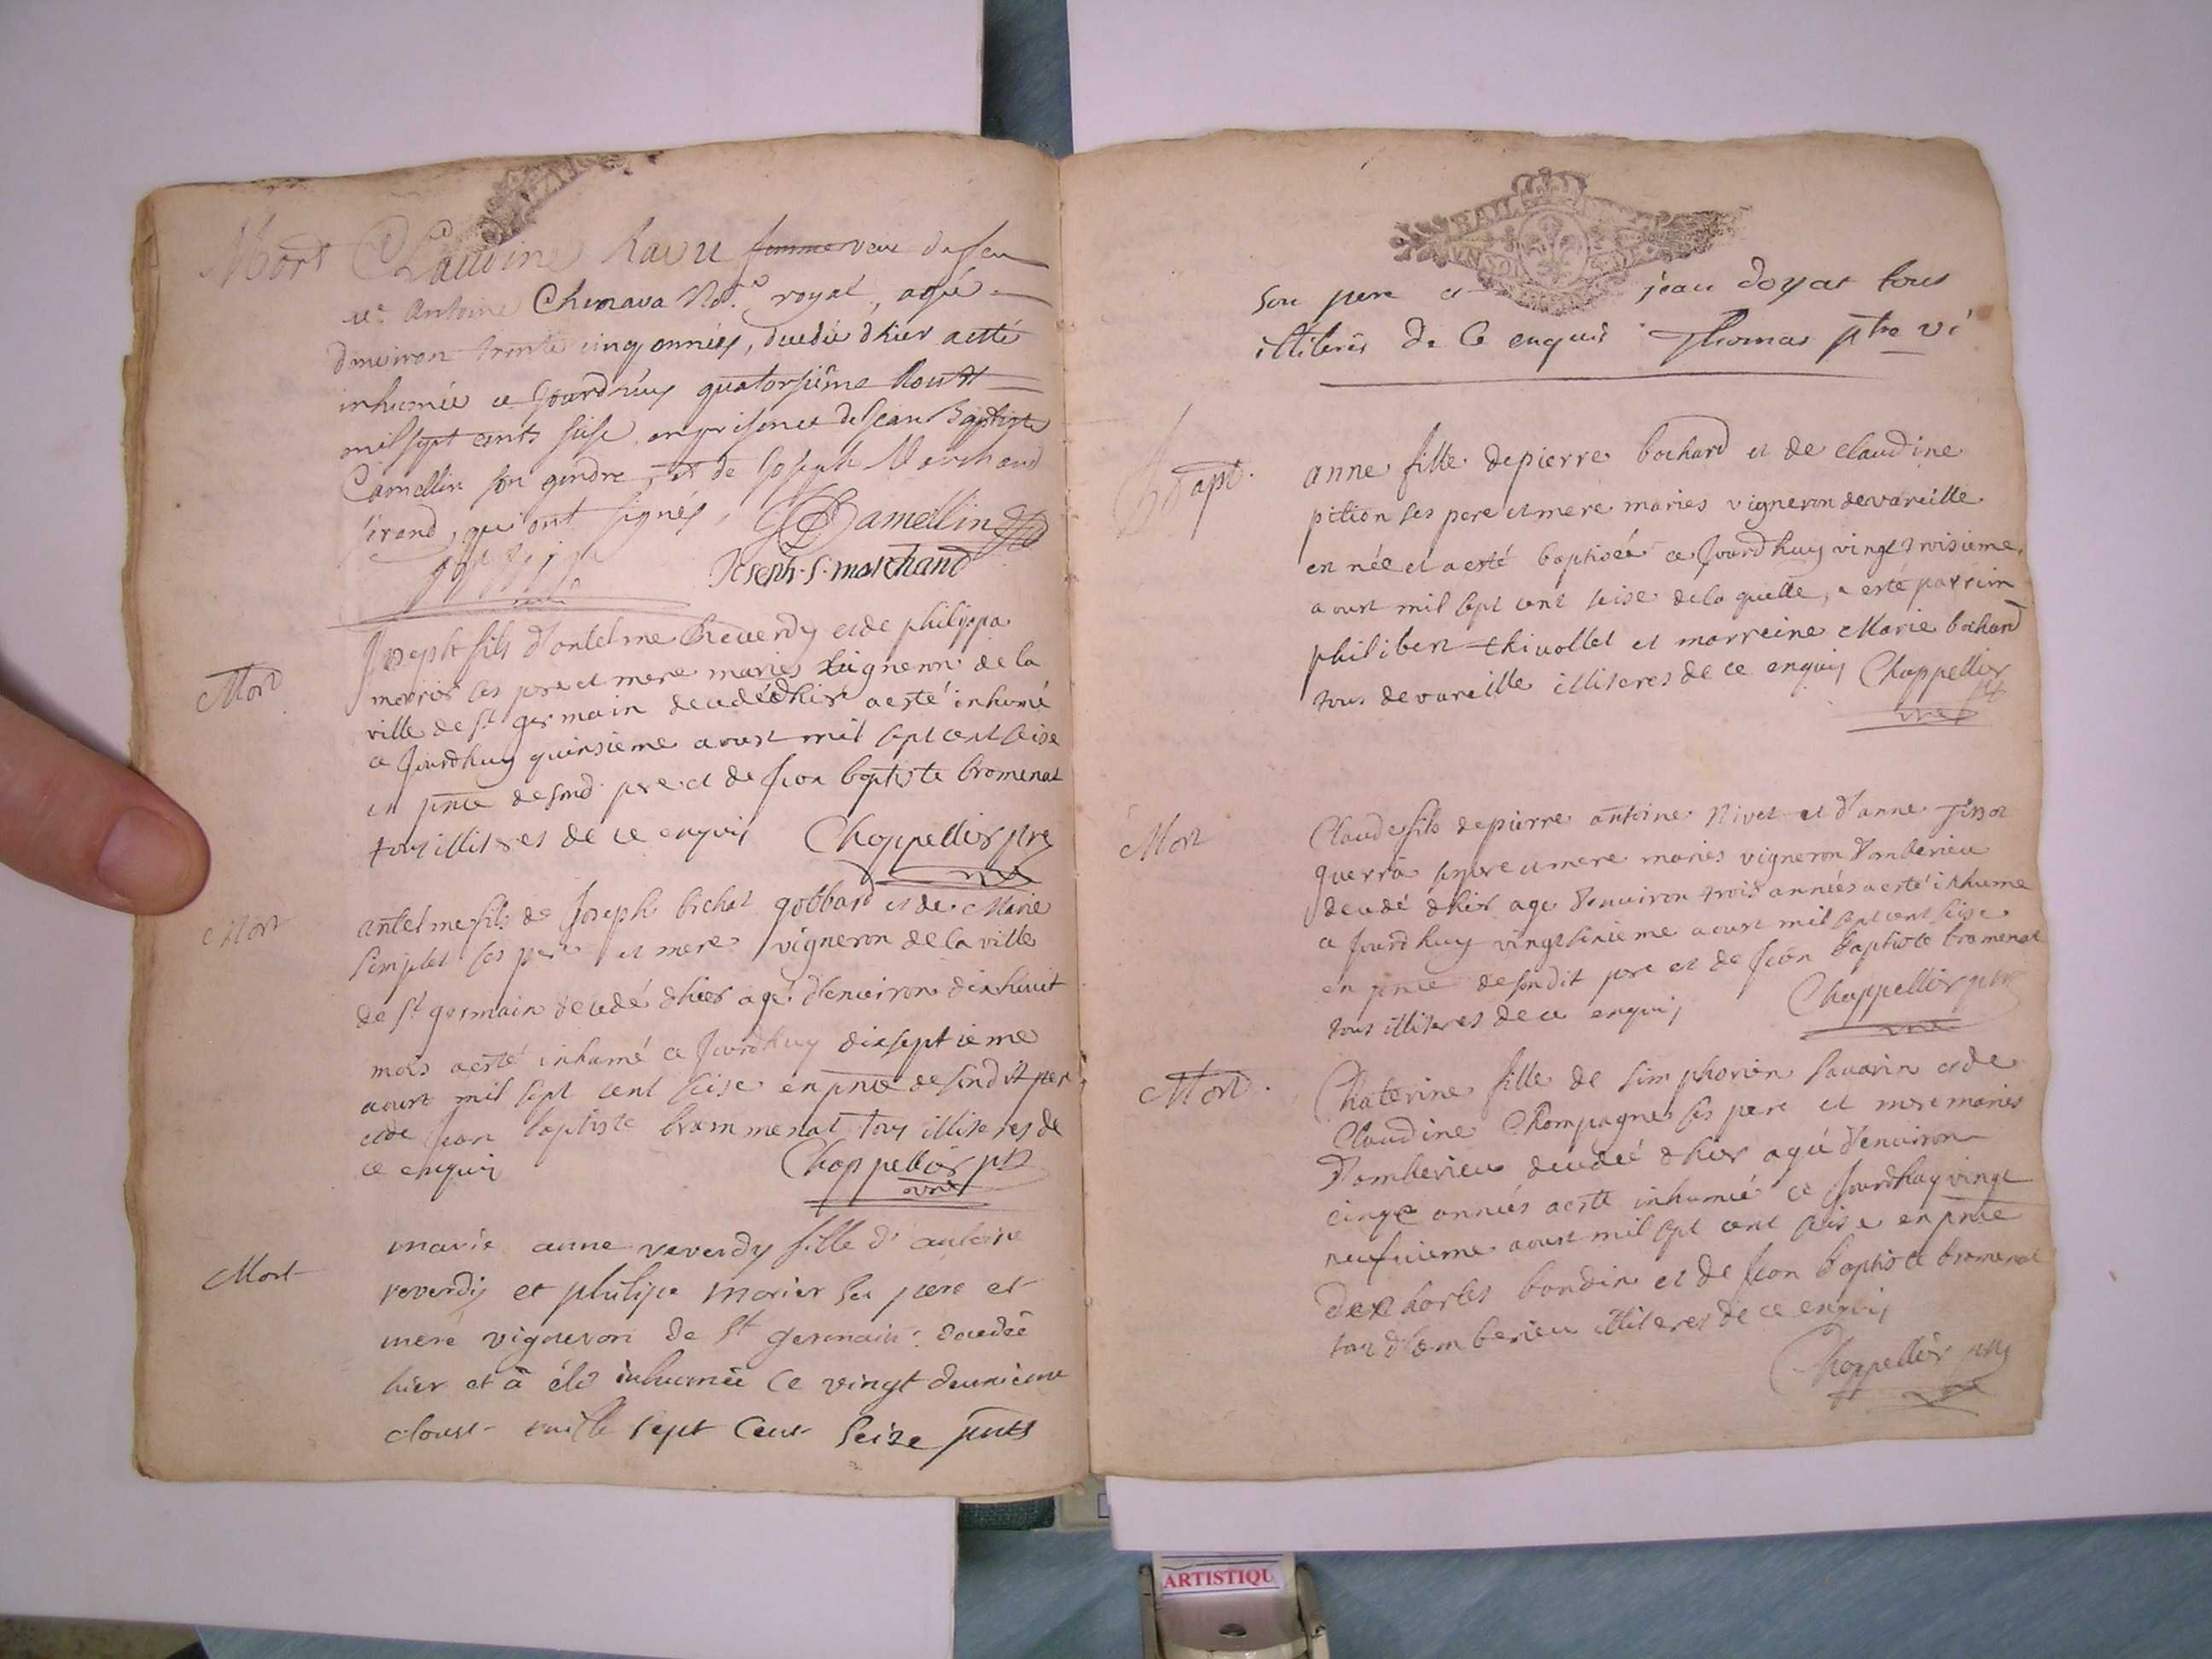 Mort Claudine Ravu femme veve de feu
Me Antoine Chenava Nore royal, agée
d'environ trente cinq années, decedée d'hier a esté
inhumée ce jourd'huy quatorsième Aoust
mil sept cents seise en presence de Jean Baptiste
Camellin son gendre, et de Joseph Marchand
Grand, qui ont signés, JB Camellin
Joseph. S. marchand
Mort Joseph fils d'antelme Reverdy et de philippa
morier ses pere et mere mariés vigneron de la
ville de St germain decedé d'hier a esté inhumé
ce Jourdhuy quinsieme aoust mil sept cent seise
en pnce de sond. pere et de Jean baptiste bromenat
tous illiteres de ce enquis Chappellier ptre
vire
Mort antelme fils de Joseph bichat gobbard et de Marie
Semplet ses pere et mere vigneron de la ville
de St germain decedé d'hier agé d'environ dix huict
mois a esté inhumé ce Jourdhuy dixseptieme
aoust mil sept cent seise en pnce de sondit pere
et de Jean baptiste brommenat tous illiteres de
ce enquis Chappellier ptre
vire
Mort marie anne reverdy fille d'antoine
reverdy et philipe morier ses pere et
mere vigneron de St germain decedée
hier et a été inhumée ce vingt deuxieme
doust mille sept cent seize pnts
BAIL
son pere et jean doyat tous
illiterés de ce enquis Thomas ptre vi
Bapt. anne fille de pierre bochard et de claudine
pition ses pere et mere mariés vigneron de vareille
en née et a esté baptisée ce Jourdhuy vingt troisieme
aoust mil sept cent seise de la quelle a esté parrein
philibert thivollet et marreine Marie bochard
tous de vareille illiteres de ce enquis Chappellier
vire
Mort Claude fils de pierre antoine Nivet et d'anne
guerra ses pere et mere mariés vigneron d'amberieu
decedé d'hier agé d'environ trois années a esté inhumé
ce Jourdhuy vingt sixieme aoust mil sept cent seise
en pnce de sondit pere et de Jean baptiste bromenat
tous illiteres de ce enquis Chappellier ptre
vire
Mort. Chaterine fille de simphorien savarin et de
Claudine Champagne ses pere et mere mariés
d'amberieu decedée d'hier agée d'environ
cinq années a esté inhumée ce Jourdhuy vingt
neufvieme aoust mil sept cent seise en pnce
de charles bondin et de Jean baptiste bromenat
tous d'amberieu illiteres de ce enquis
Chappellier ptre
vire
ARTISTIQU